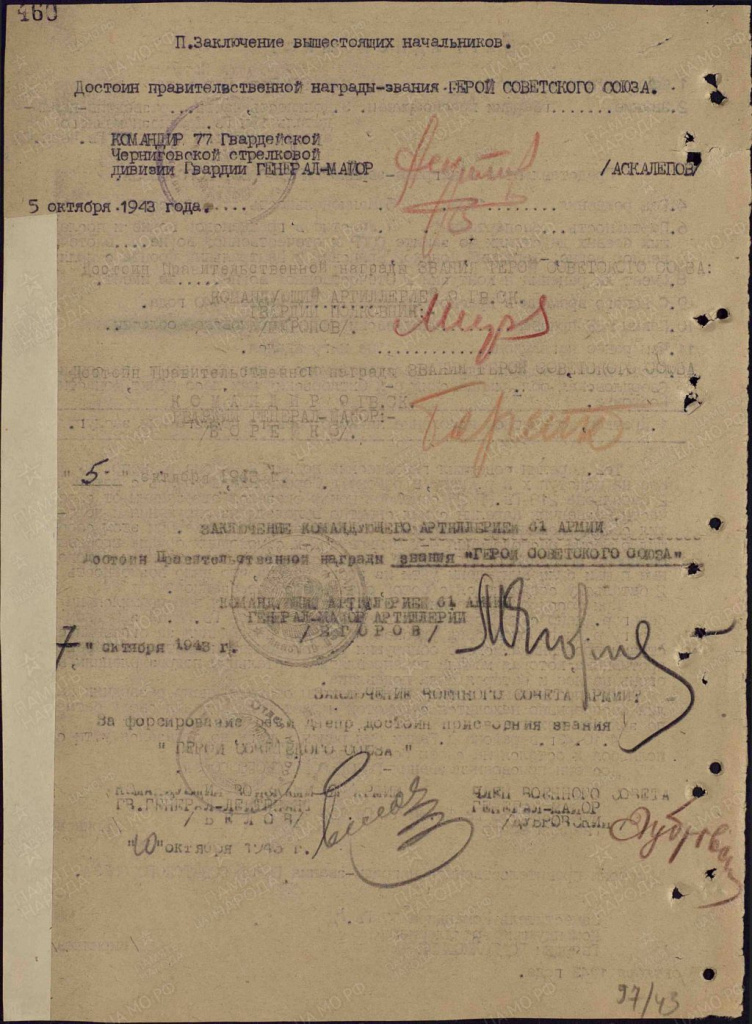 460
П.Заключение вышестоящих начальников.
Достоин правительственной награды-звания ГЕРОЙ СОВЕТСКОГО СОЮЗА.
КОМАНДИР 77 Гвардейской
Черниговской стрелковой
дивизии Гвардии ГЕНЕРАЛ-МАЙОР /АСКАЛЕПОВ/
5 октября 1943 года.
Достоин Правительственной награды ЗВАНИЯ ГЕРОЙ СОВЕТСКОГО СОЮЗА:
КОМАНДУЮЩИЙ АРТИЛЛЕРИЕЙ 9 ГВ.СК
ГВАРДИИ ПОЛКОВНИК
Достоин Правительственной награды ЗВАНИЯ ГЕРОЙ СОВЕТСКОГО СОЮЗА
КОМАНДИР 9 ГВ.СК
ГВАРДИИ ГЕНЕРАЛ-МАЙОР-
/БОРЕЙКО/.
"5" октября 1943 г.
ЗАКЛЮЧЕНИЕ КОМАНДУЮЩЕГО АРТИЛЛЕРИЕЙ 61 АРМИИ
Достоин Правительственной награды звания "ГЕРОЙ СОВЕТСКОГО СОЮЗА"
КОМАНДУЮЩИЙ АРТИЛЛЕРИЕЙ 61 АРМИИ
ГЕНЕРАЛ-МАЙОР АРТИЛЛЕРИИ
/ЕГОРОВ/
7 " октября 1943 г.
ЗАКЛЮЧЕНИЕ ВОЕННОГО СОВЕТА АРМИИ:
За форсирование реки Днепр достоин присвоения звания
" ГЕРОЙ СОВЕТСКОГО СОЮЗА "
КОМАНДУЮЩИЙ ВОЙСКАМИ 61 АРМИИ ЧЛЕН ВОЕННОГО СОВЕТА
ГВ.ГЕНЕРАЛ-ЛЕЙТЕНАНТ ГЕНЕРАЛ-МАЙОР
/БЕЛОВ/ /ДУБРОВСКИЙ/
"10" октября 1943 г.
97/43